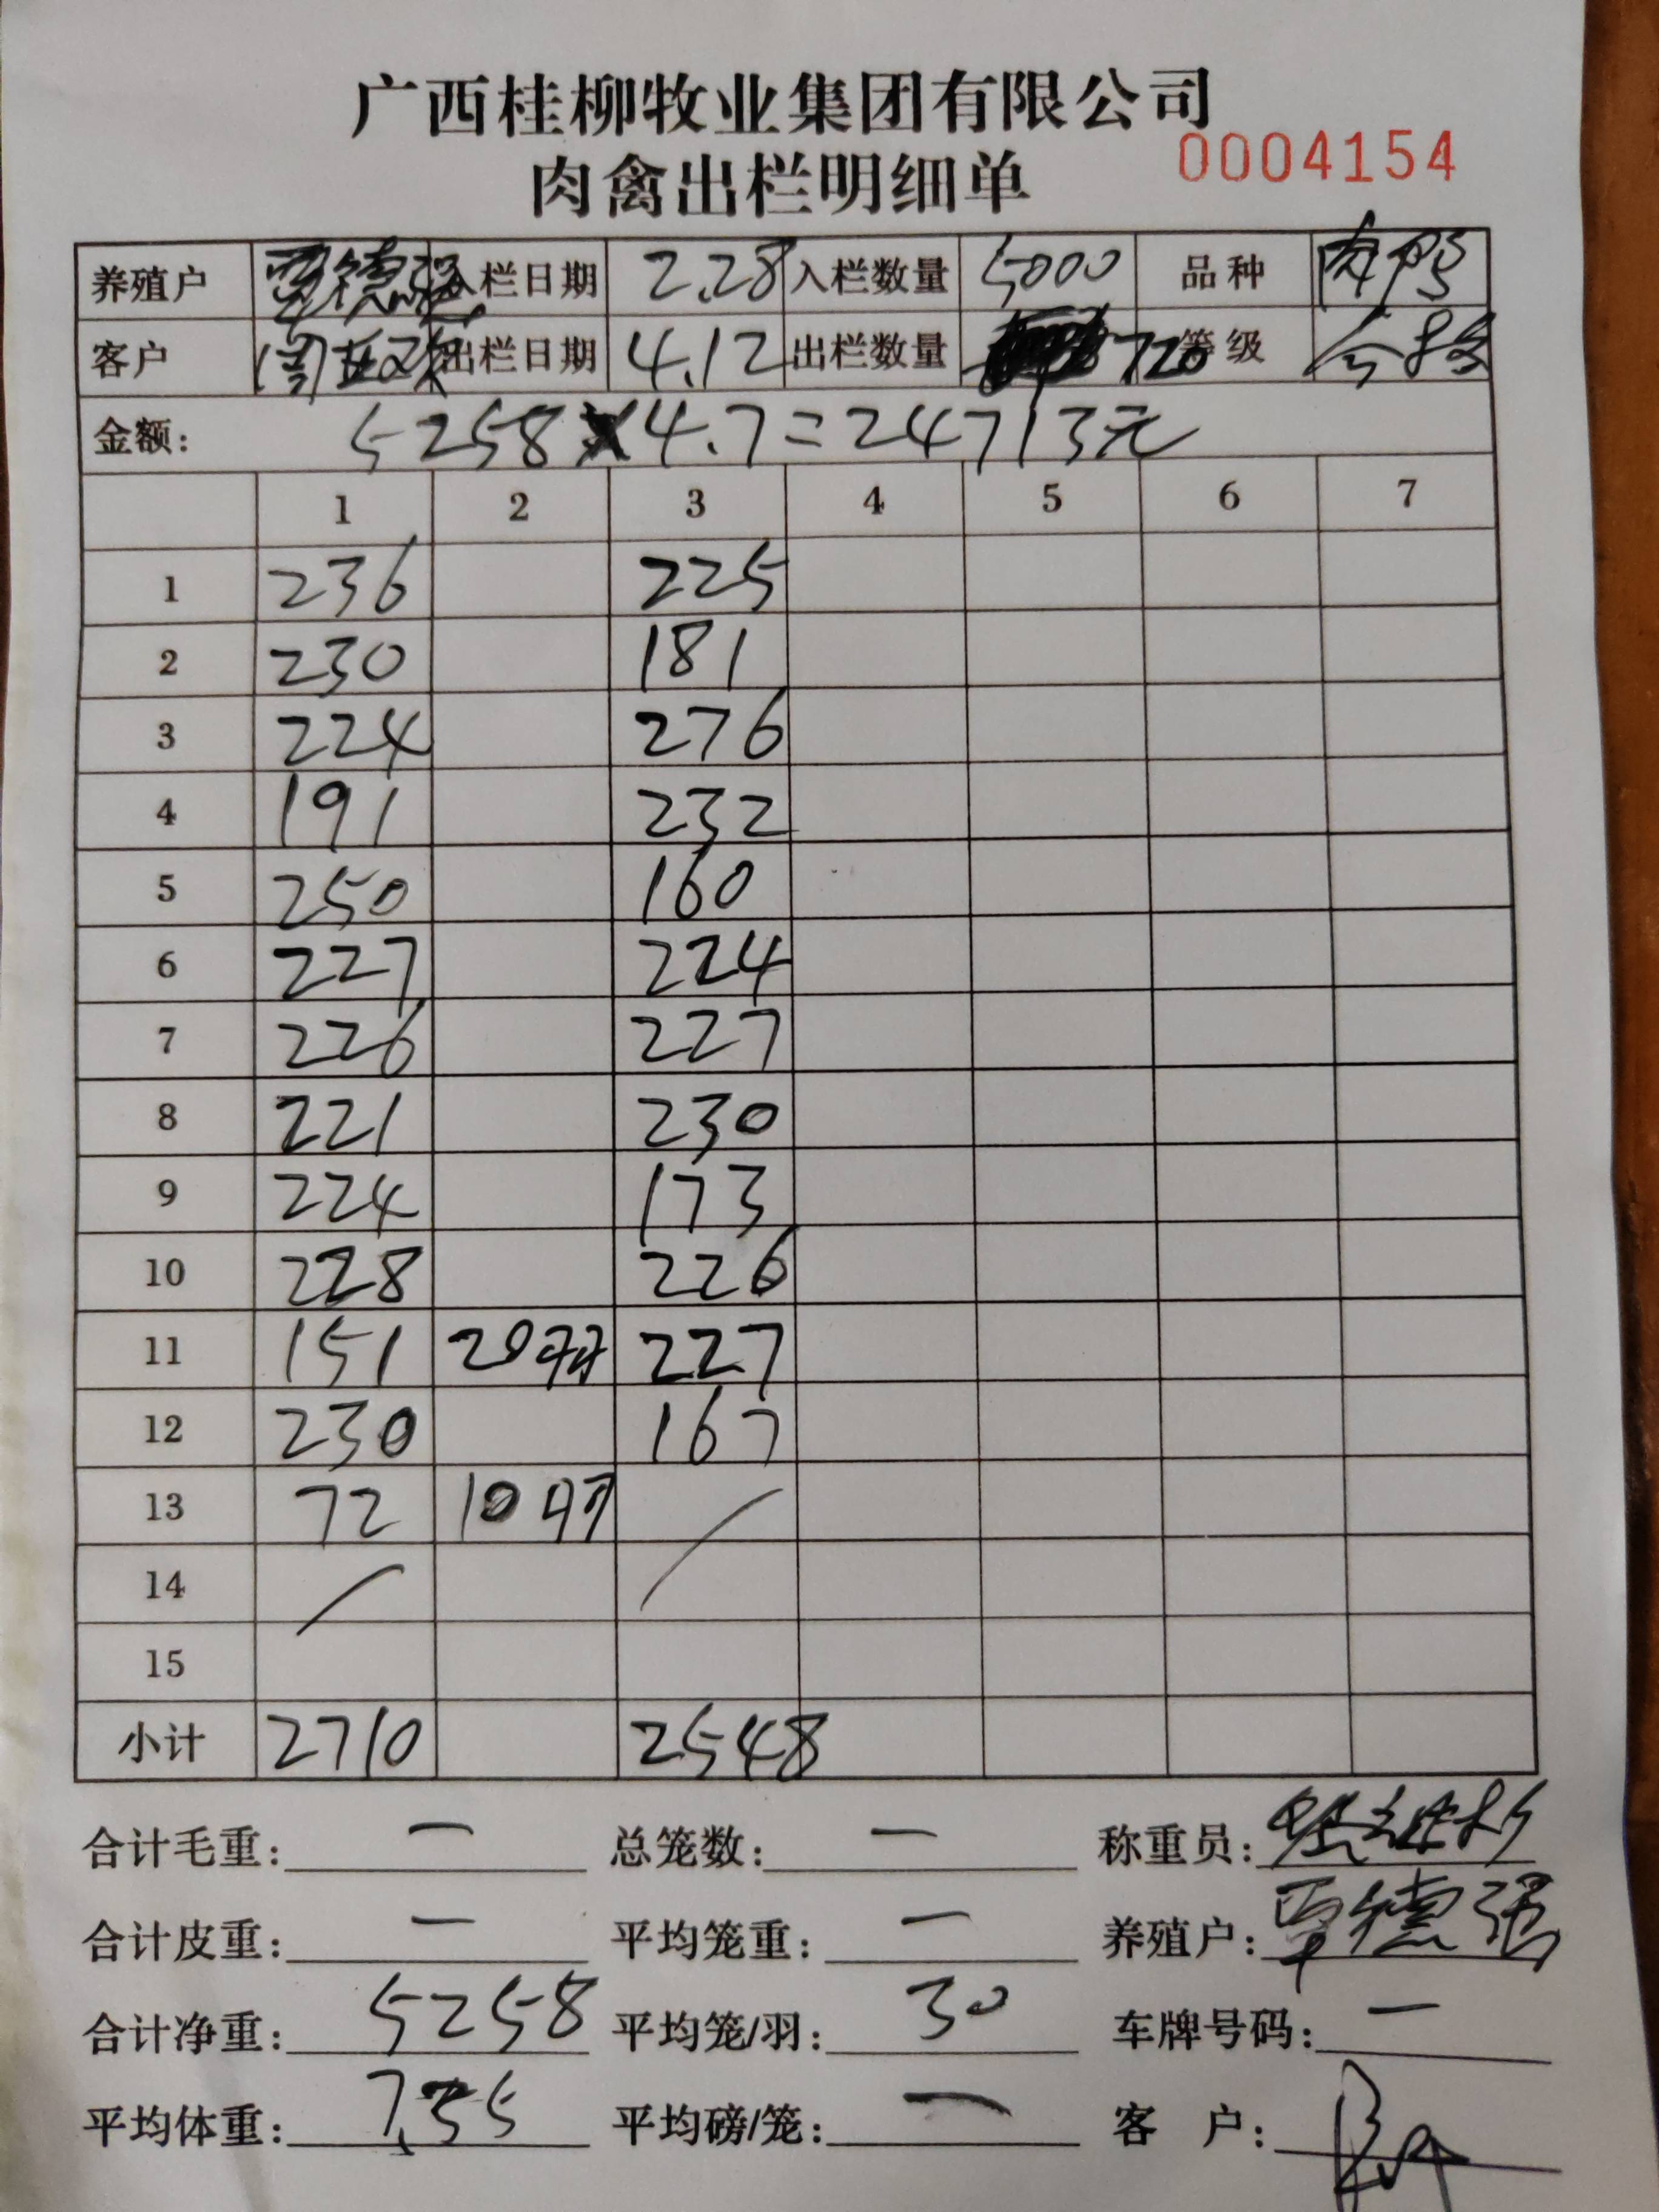 广西桂柳牧业集团有限公司
肉禽出栏明细单 0004154
养殖户 覃德强 入栏日期 2.28 入栏数量 5000 品种 肉鸭
客户 出栏日期 4.12 出栏数量 720 等级 合格
金额: 5258×4.7=24713元
1 2 3 4 5 6 7
1 236 225
2 230 181
3 224 276
4 191 232
5 250 160
6 227 224
7 226 227
8 221 230
9 224 173
10 228 226
11 151 20 227
12 230 167
13 72 10
14
15
小计 2710 2548
合计毛重: — 总笼数: — 称重员:
合计皮重: — 平均笼重: — 养殖户: 覃德强
合计净重: 5258 平均笼/羽: 30 车牌号码: —
平均体重: 7.35 平均磅/笼: — 客 户: